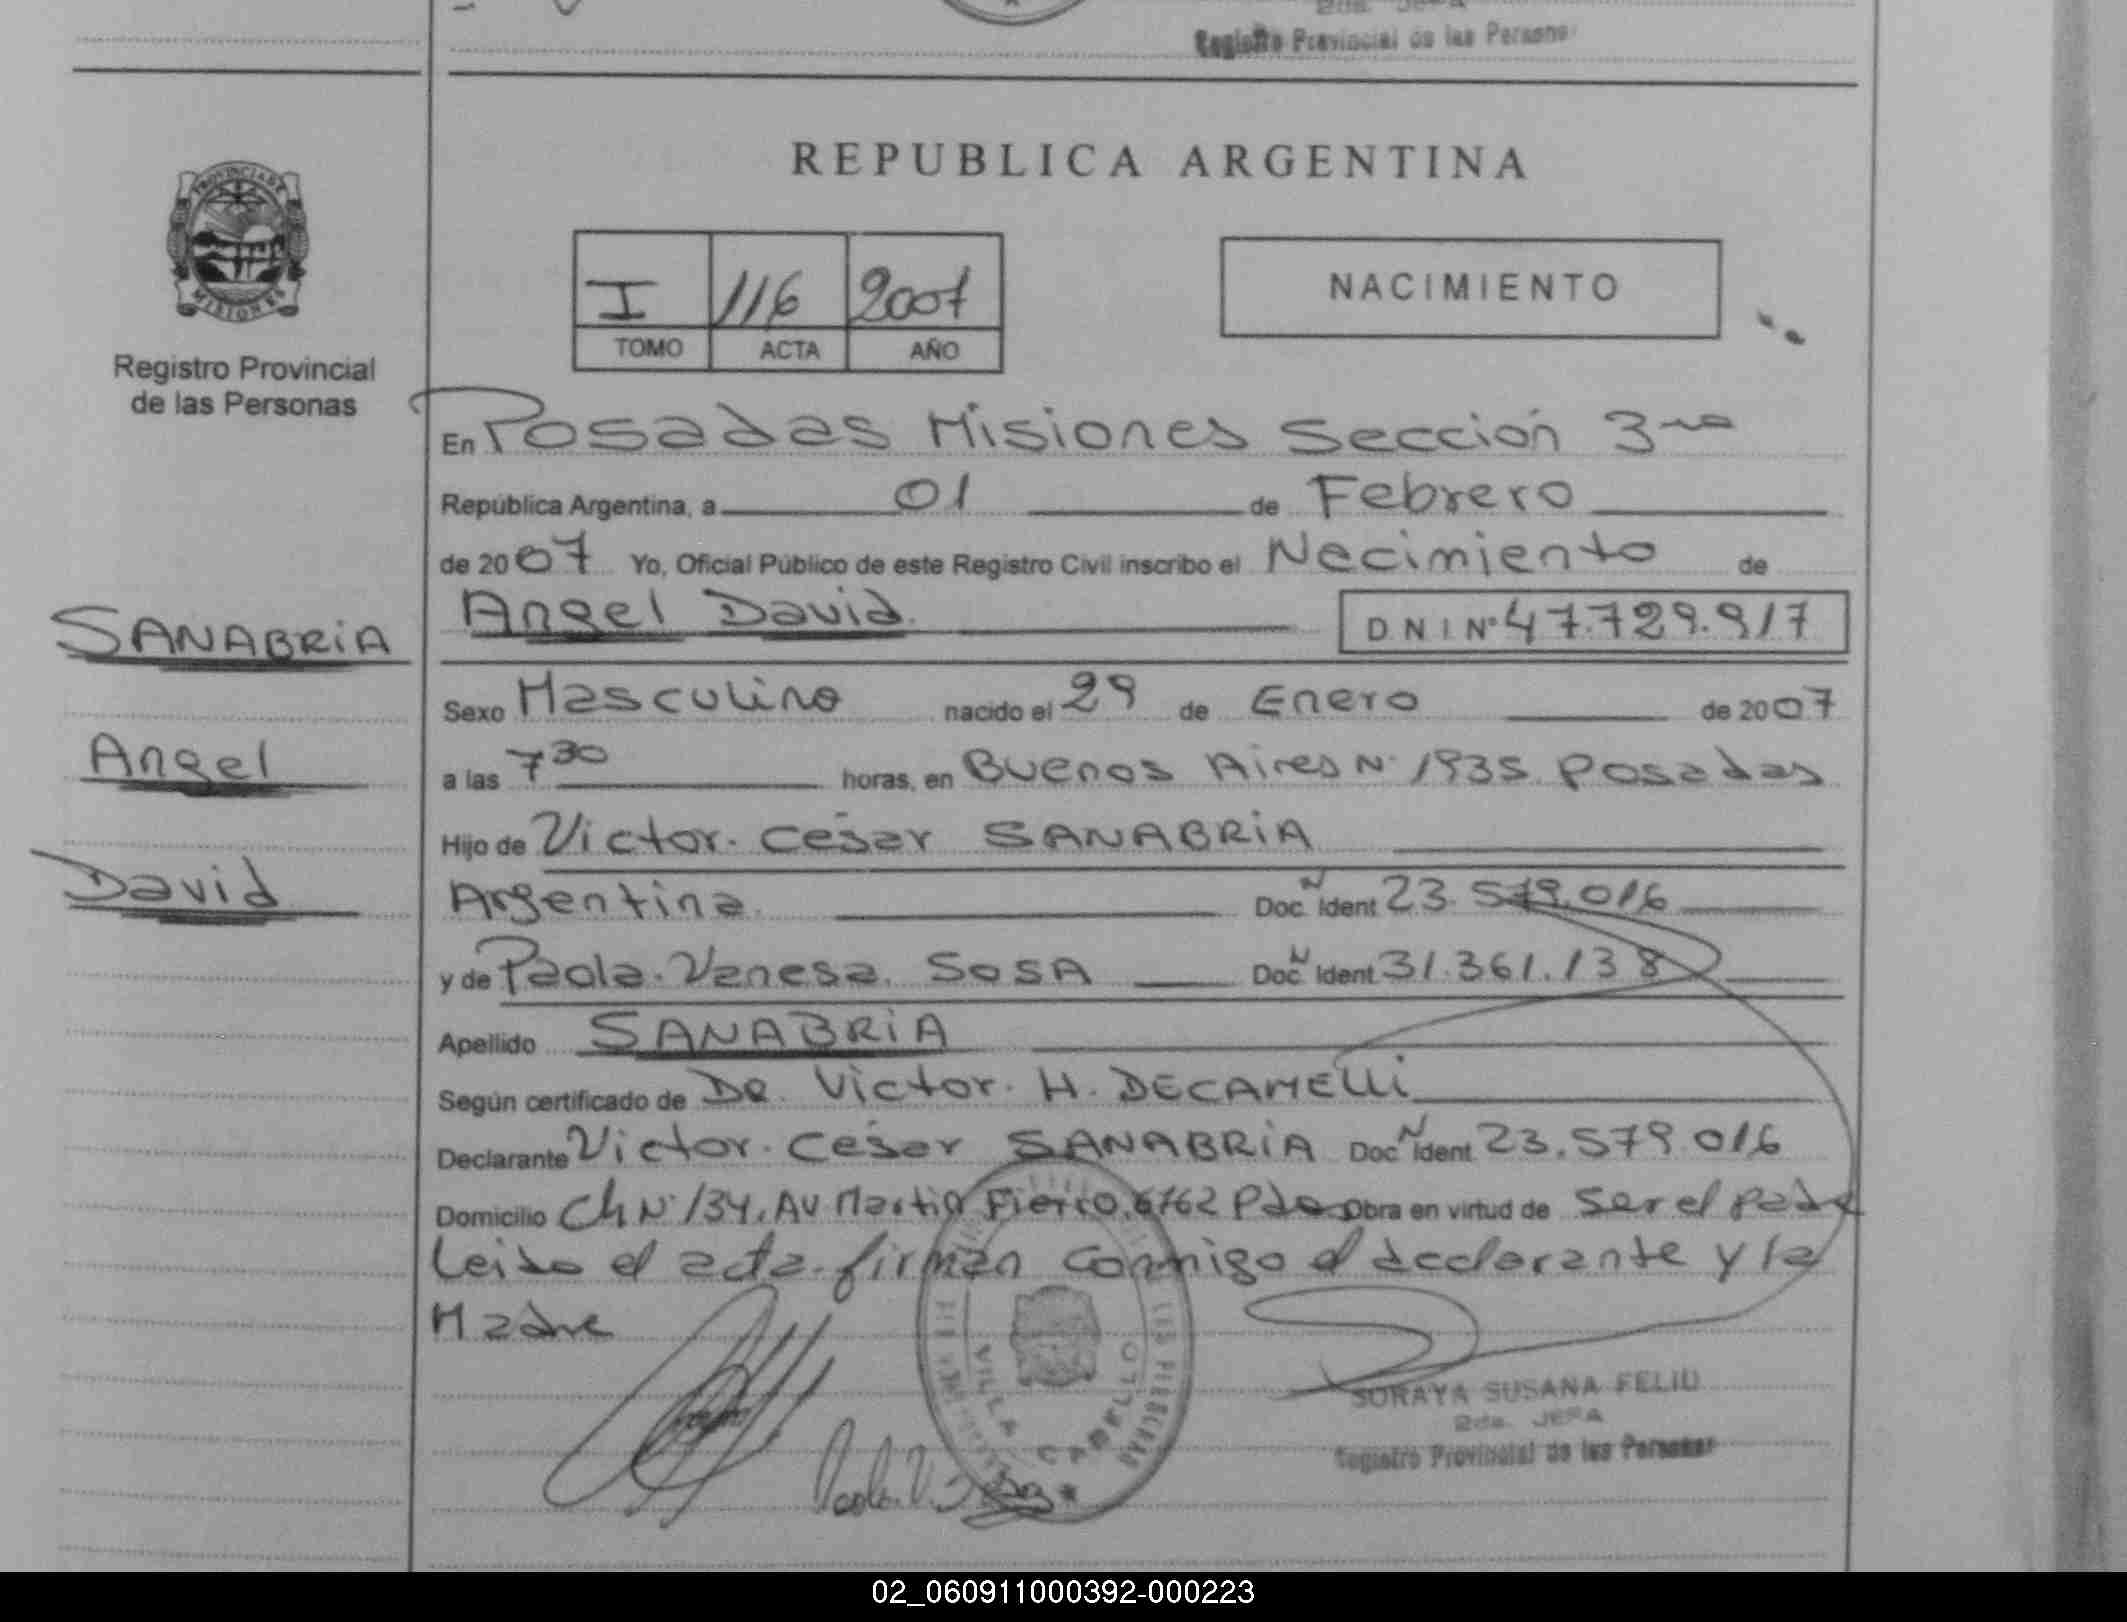 2da. JEFA
Registro Provincial de las Personas
PROVINCIA DE
MISIONES
Registro Provincial
de las Personas
REPUBLICA ARGENTINA
I 116 2007
TOMO ACTA AÑO
NACIMIENTO
En Posadas Misiones Sección 3ra
República Argentina, a 01 de Febrero
de 2007 Yo, Oficial Público de este Registro Civil inscribo el Necimiento de
SANABRIA
Angel
David
Angel David. DNI Nº 47.729.917
Sexo Masculino nacido el 29 de Enero de 2007
a las 7 30 horas, en Buenos Aires Nº 1935 Posadas
Hijo de Victor. César SANABRIA
Argentina. Doc. N Ident 23.579.016
y de Paola. Vanesa. SOSA Doc. N Ident 31.361.138
Apellido SANABRIA
Según certificado de Dr. Victor. H. DECAMELLI
Declarante Victor. César SANABRIA Doc N Ident 23.579.016
Domicilio Ch Nº 134. Av Martin Fierro. 6762 Pdas Obra en virtud de ser el padre
Leida el acta. firman conmigo el declarante y la
Madre
VILLA CABELLO
Paola. V. Sosa
SORAYA SUSANA FELIU
2da. JEFA
Registro Provincial de las Personas
02_060911000392-000223